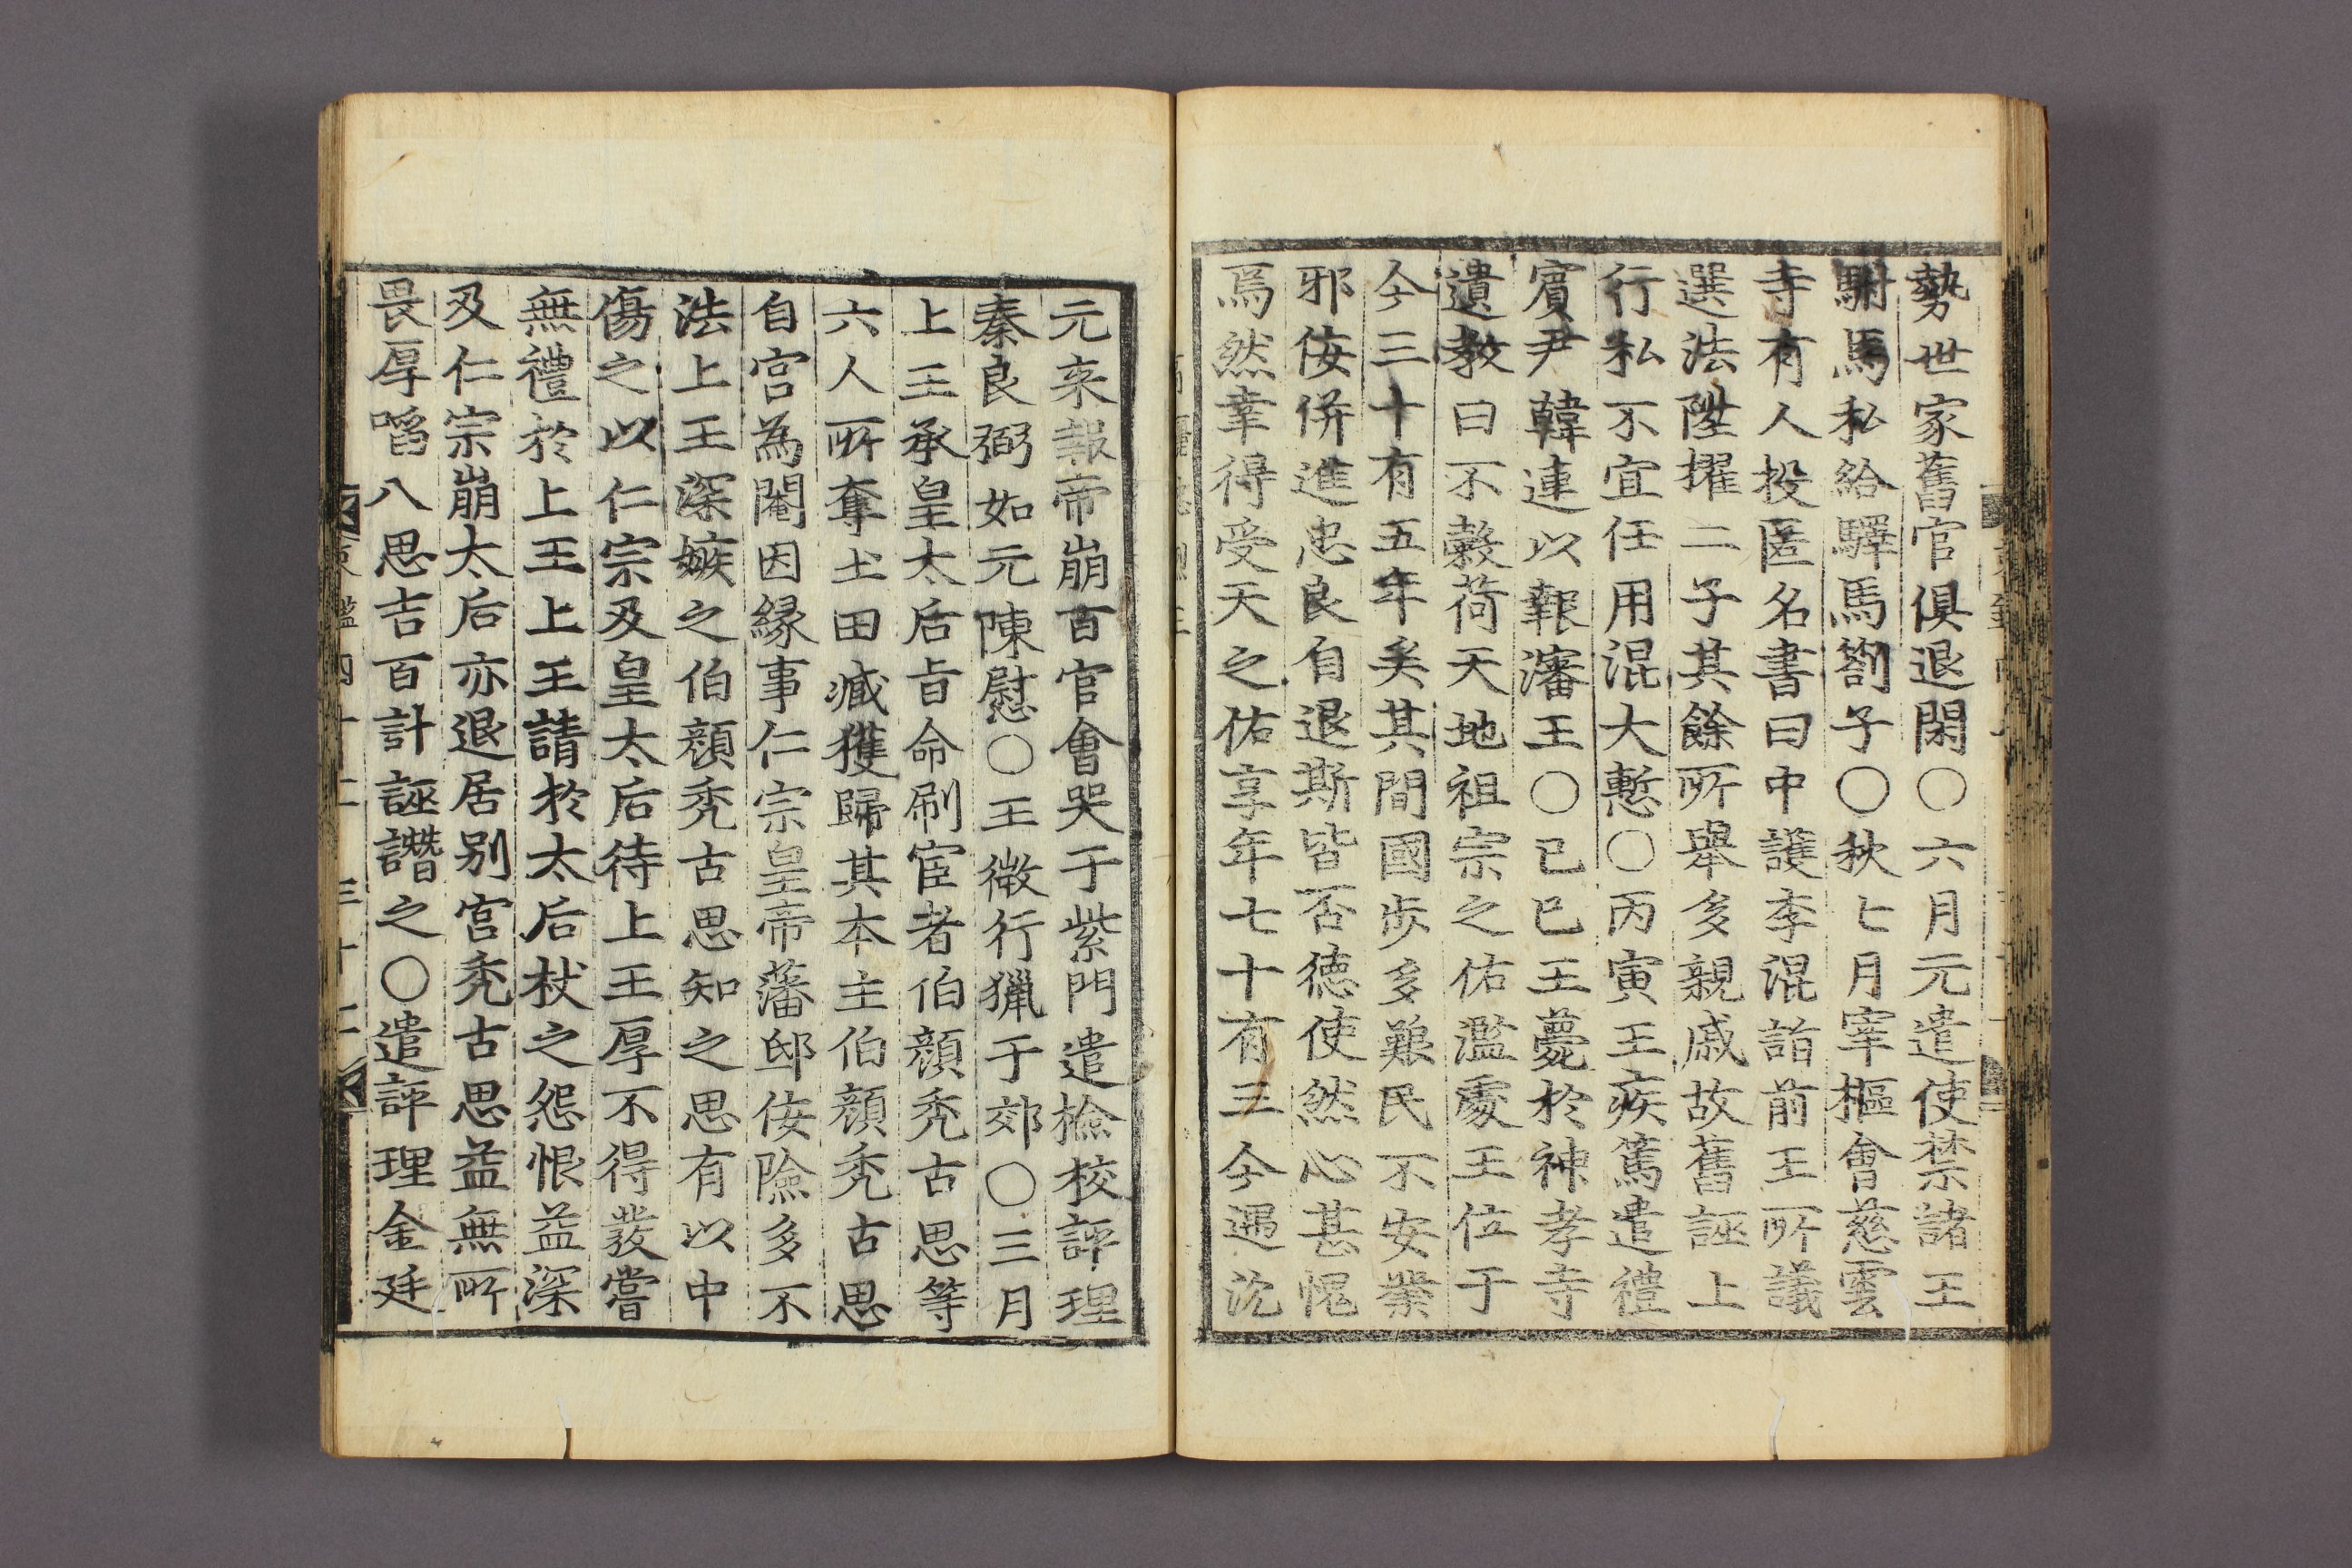 勢世家舊官俱退閑○六月元遣使禁諸王
駙馬私給驛馬劄子○秋七月宰樞會慈雲
寺有人投匿名書曰中護李混詣前王所議
選法陞擢二子其餘所舉多親戚故舊誣上
行私不宜任用混大慙○丙寅王疾篤遣禮
賓尹韓連以報瀋王○己巳王薨於神孝寺
遺教曰不穀荷天地祖宗之佑濫處王位于
今三十有五年矣其間國步多艱民不安業
邪侫併進忠良自退斯皆否德使然心甚愧
焉然幸得受天之佑享年七十有三今遇沈
元来報帝崩百官會哭于紫門遣檢校評理
秦良弼如元陳慰○王微行獵于郊○三月
上王承皇太后旨命刷宦者伯顔禿古思等
六人所奪土田臧獲歸其本主伯顔禿古思
自宮為閹因緣事仁宗皇帝藩邸侫險多不
法上王深嫉之伯顔禿古思知之思有以中
傷之以仁宗及皇太后待上王厚不得發嘗
無禮於上王上王請於太后杖之怨恨益深
及仁宗崩太后亦退居別宮禿古思益無所
畏厚啗八思吉百計誣譖之○遣評理金廷
鑑四十二 三十二